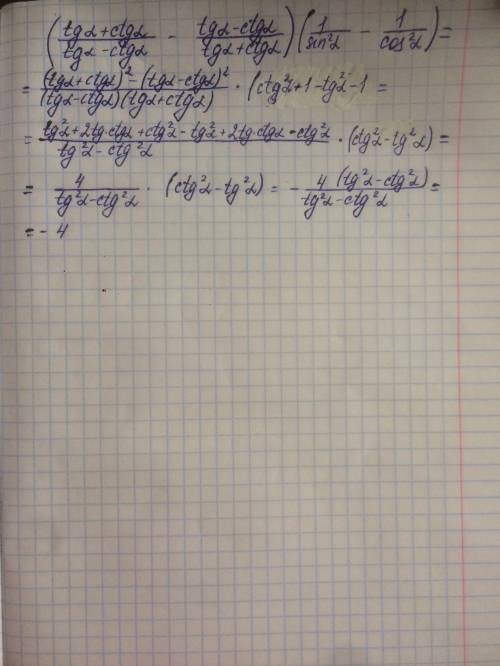 (tgα+ctgα/tgα-ctgα - tgα-ctgα/tgα+ctgα)(1/sin²α - 1/cos²α)=
= (tgα+ctgα)²-(tgα-ctgα)²/(tgα-ctgα)(tgα+ctgα) · (ctg²α+1-tg²α-1 =
= tg²α+2tg·ctgα+ctg²α-tg²α+2tg·ctgα-ctg²α/tg²α-ctg²α · (ctg²α-tg²α)=
= 4/tg²α-ctg²α · (ctg²α-tg²α) = - 4(tg²α-ctg²α)/tg²α-ctg²α =
= - 4